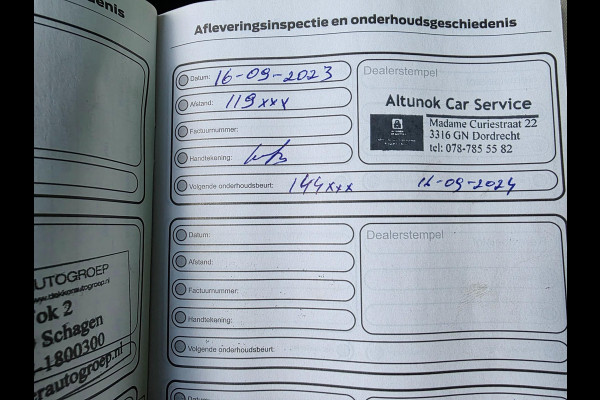 denis
UTOGROEP
www.dekkerautogroep.nl
ok 2
Schagen
-1800300
rautogroep.nl
Afleveringsinspectie en onderhoudsgeschiedenis
Datum: 16-09-2023
Afstand: 119xxx
Factuurnummer:
Handtekening:
Volgende onderhoudsbeurt: 144xxx 16-09-2024
Dealerstempel
Altunok Car Service
Madame Curiestraat 22
3316 GN Dordrecht
tel: 078-785 55 82
Datum:
Afstand:
Factuurnummer:
Handtekening:
Volgende onderhoudsbeurt:
Dealerstempel
Datum: